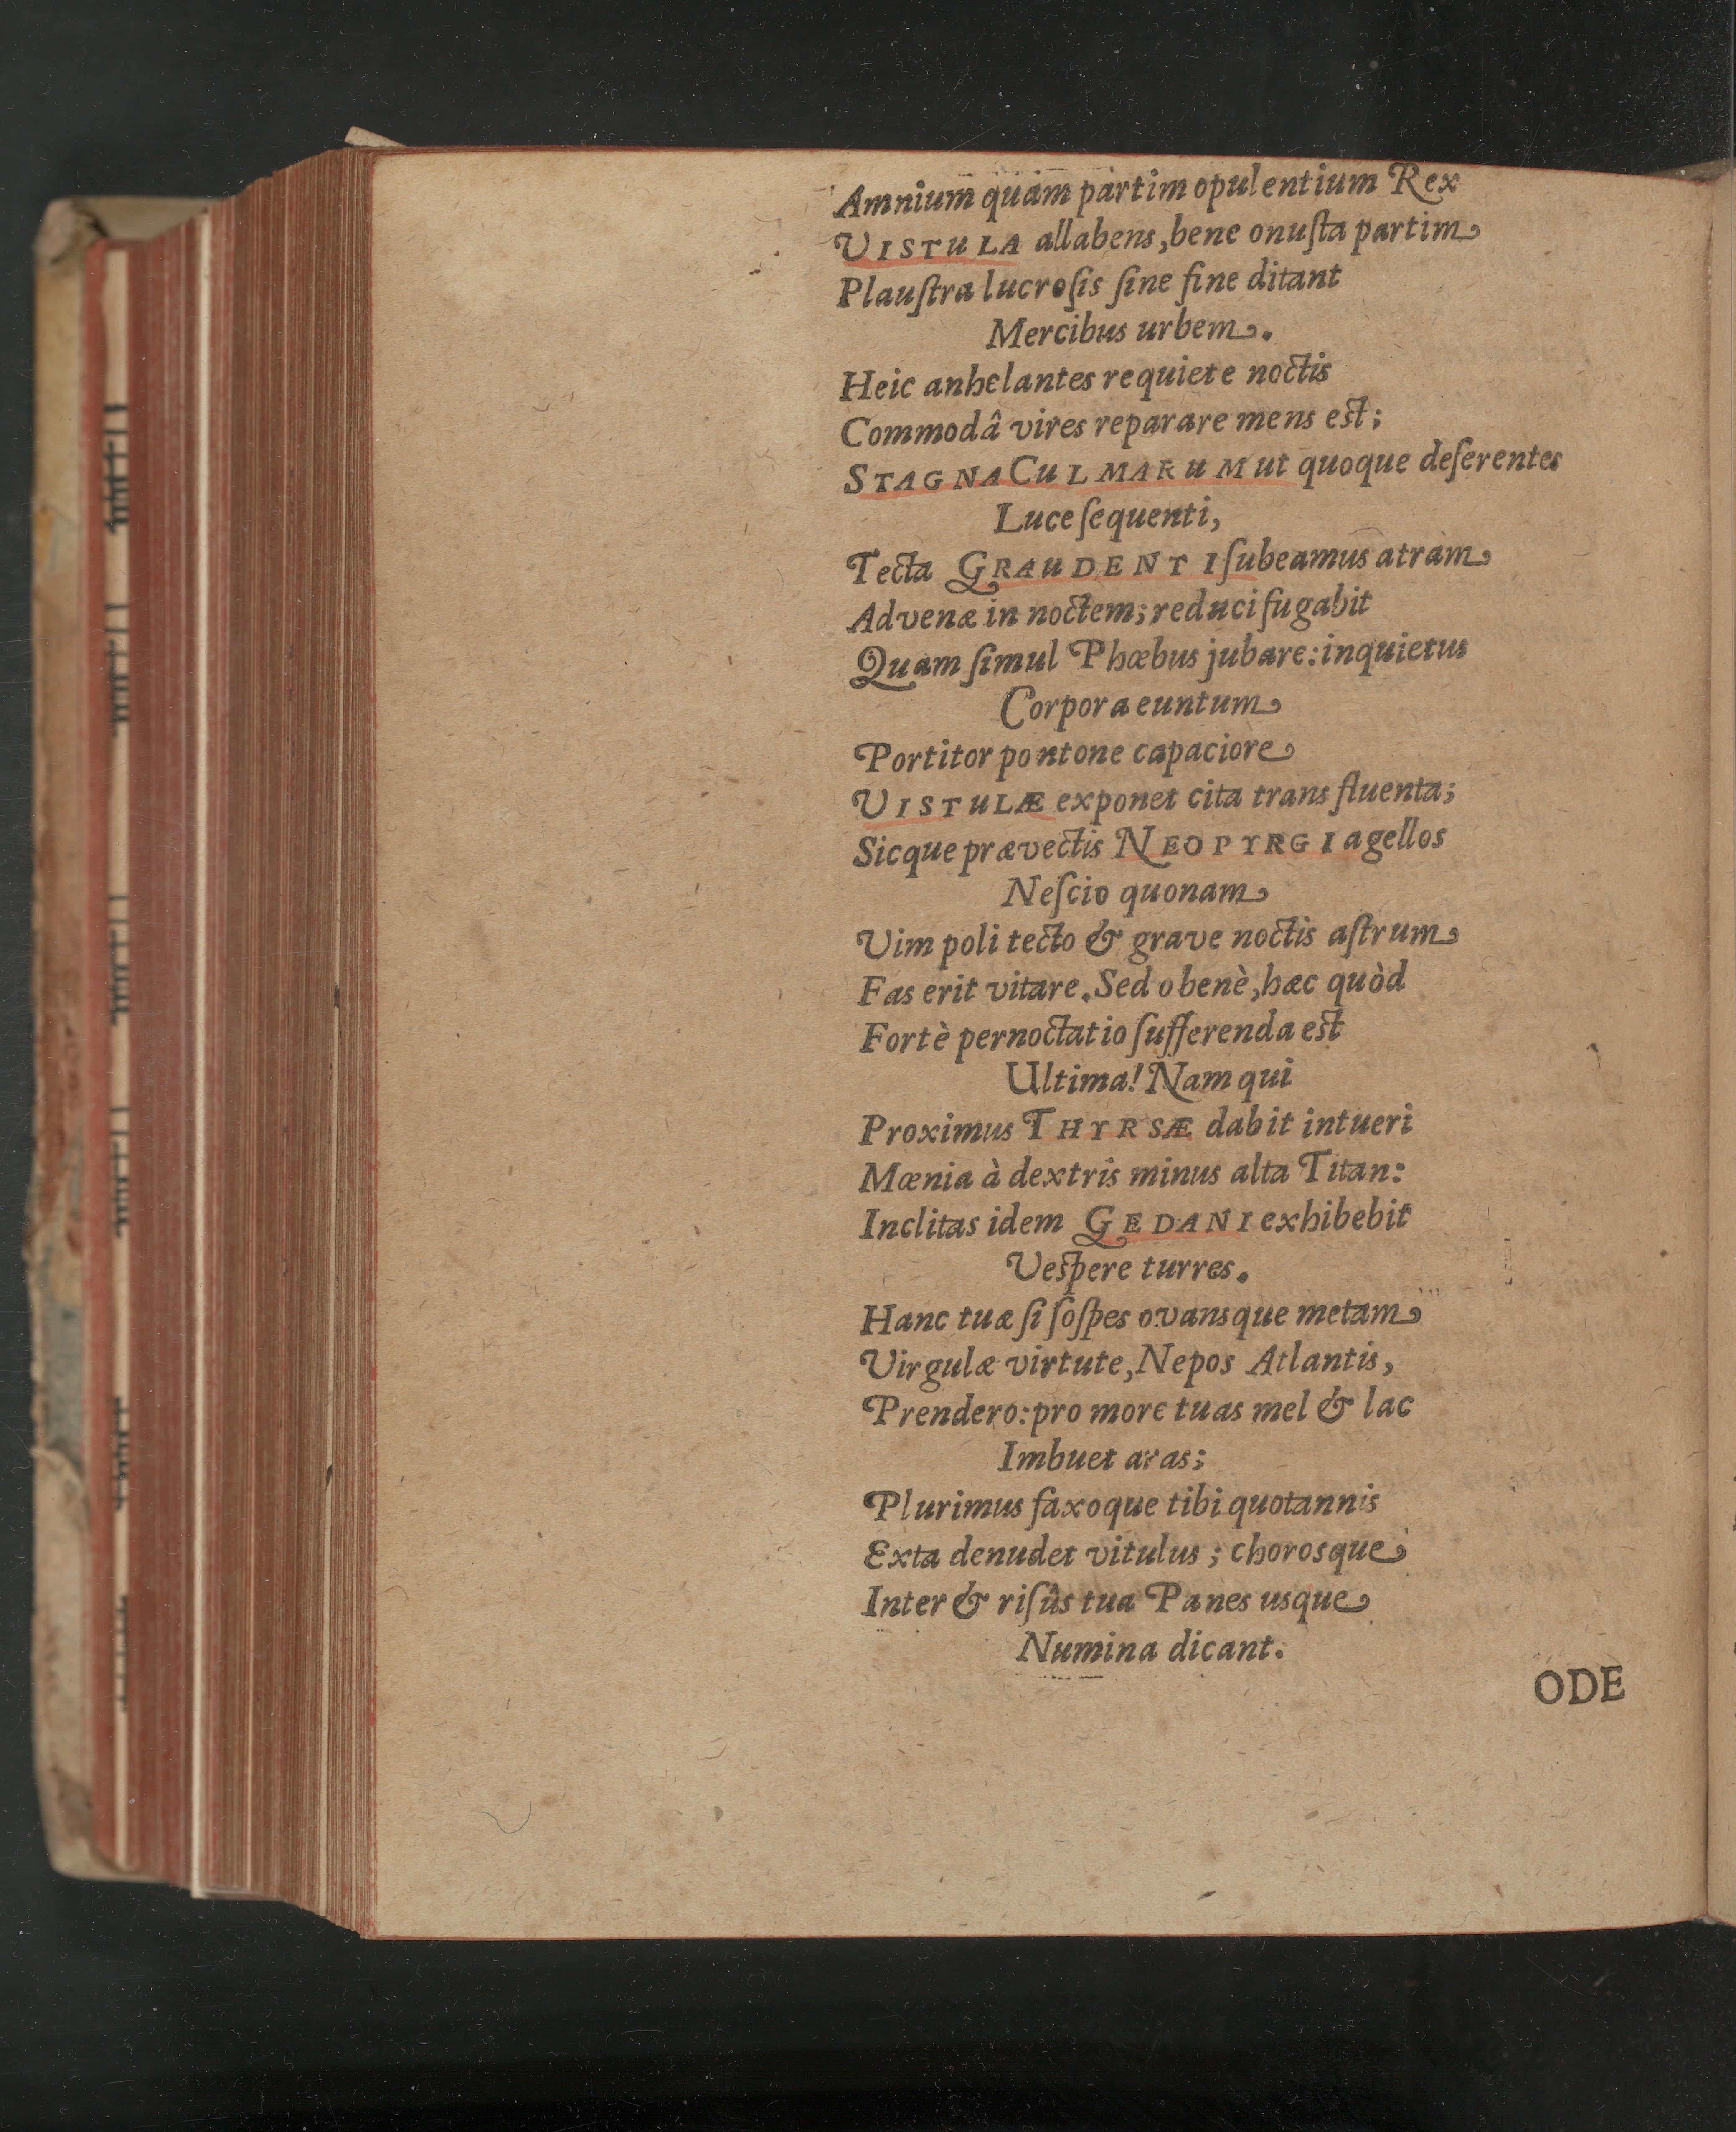 Amnium quàm partim opulentium Rex
VISTULA allabens, bene onuſta partim
Plauſtra lucroſis ſine fine ditant
Mercibus urbem.
Heic anhelantes requiete noctis
Commodâ vires reparare mens est;
STAGNA CULMARUM ut quoque deſerentes
Luce ſequenti,
Tecta GRAUDENTI ſubeamus atram
Advenæ in noctem; reduci fugabit
Quam ſimul Phœbus jubare: inquietus
Corpora euntum
Portitor pontone capaciore
VISTULÆ exponet cita trans fluenta;
Sicque prævectis NEOPYRGI agellos
Neſcio quonam
Vim poli tecto & grave noctis aſtrum
Fas erit vitare. Sed o benè, hæc quòd
Fortè pernoctatio ſufferenda est
Ultima! Nam qui
Proximus THYRSÆ dabit intueri
Mœnia à dextris minus alta Titan:
Inclitas idem GEDANI exhibebit
Veſpere turres.
Hanc tuæ ſi ſoſpes ovansque metam
Virgulæ virtute, Nepos Atlantis,
Prendero: pro more tuas mel & lac
Imbuet aras;
Plurimus faxoque tibi quotannis
Exta denudet vitulus; chorosque
Inter & riſûs tua Panes usque
Numina dicant.
ODE